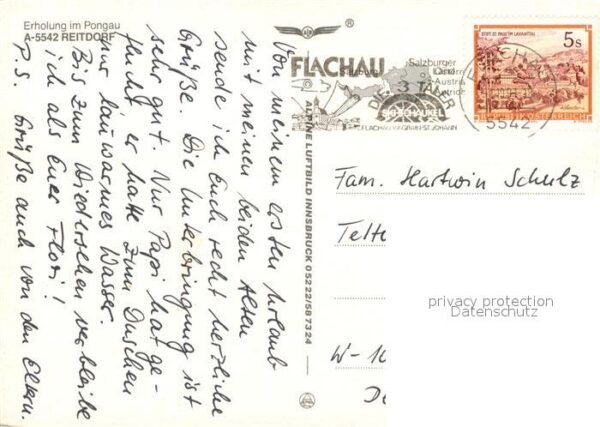 Erholung im Pongau
A-5542 REITDORF
Von meinem ersten Urlaub
mit meinen beiden Alten
sende ich Euch recht herzliche
Grüße. Die Unterbringung ist
sehr gut. Nur Papi hat ge-
flucht, er hatte zum Duschen
nur lauwarmes Wasser.
Bis zum Wiedersehen verbleibe
ich als Euer Flori!
P.S. Grüße auch von den Eltern.
ALPINE LUFTBILD INNSBRUCK 05222/587324
®
FLACHAU
Salzburger
3 TÄLER
SKISCHAUKEL
FLACHAU WAGRAIN ST. JOHANN
5542
STIFT ST. PAUL IM LAVANTTAL
5 S
REPUBLIK ÖSTERREICH
Fam. Hartwin Schulz
Telto
W-10
privacy protection
Datenschutz